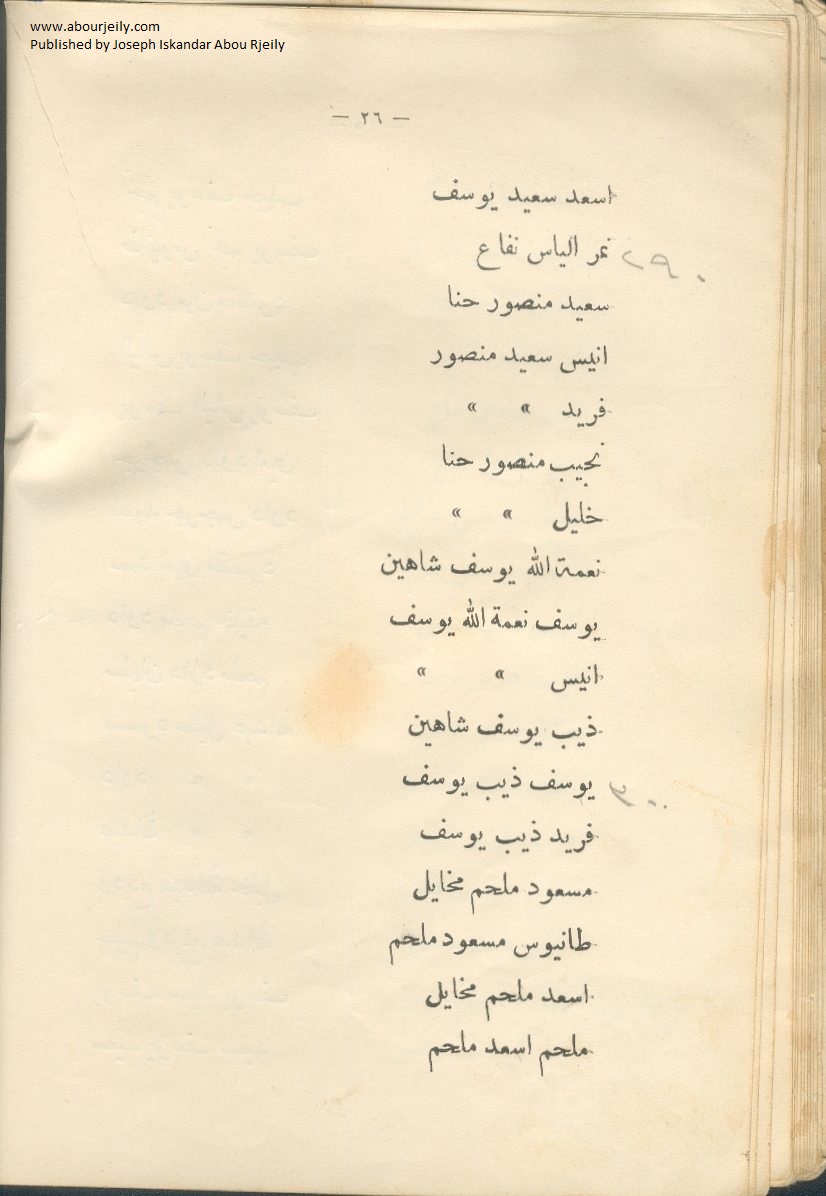 www.abourjeily.com
Published by Joseph Iskandar Abou Rjeily
— ٢٦ —
اسعد سعيد يوسف
نمر الياس نفاع
سعيد منصور حنا
انيس سعيد منصور
فريد » »
نجيب منصور حنا
خليل » »
نعمة الله يوسف شاهين
يوسف نعمة الله يوسف
انيس » »
ذيب يوسف شاهين
يوسف ذيب يوسف
فريد ذيب يوسف
مسعود ملحم مخايل
طانيوس مسعود ملحم
اسعد ملحم مخايل
ملحم اسعد ملحم